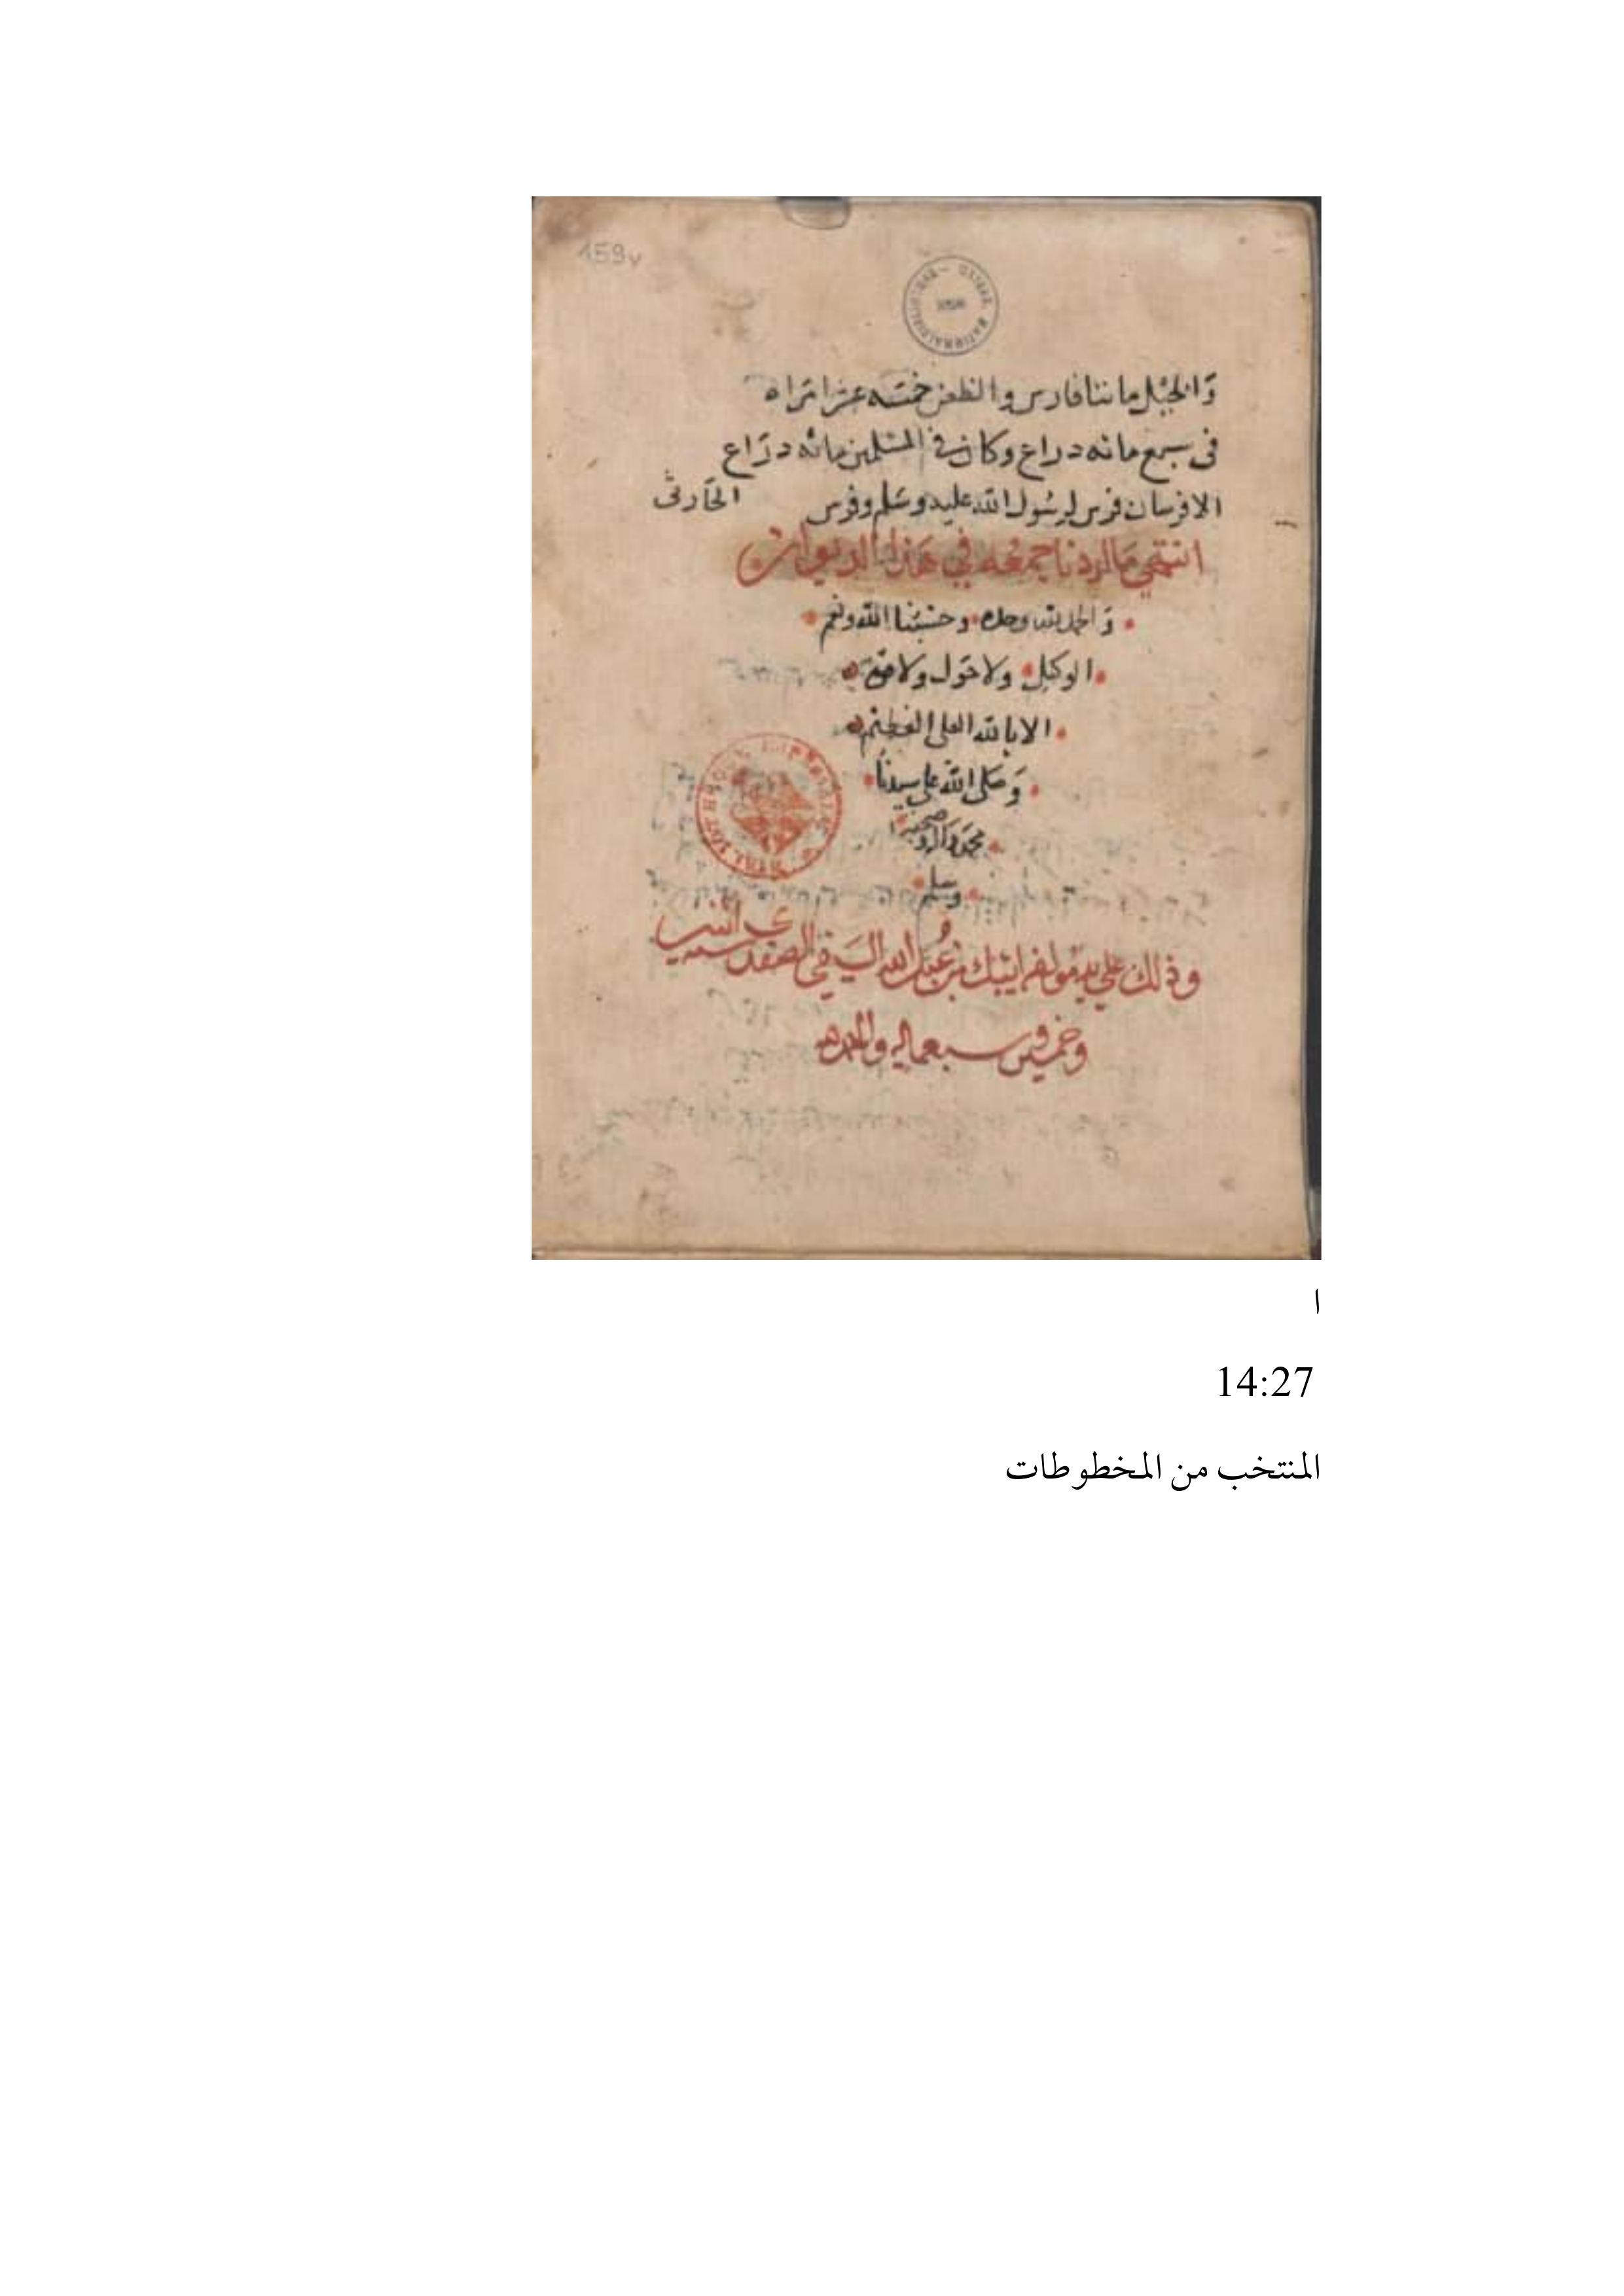 159v
وَالخيْل مائتا فارس والظعن خمسَه عشر امرَاه
في سبع مائه دراع وكان في المسلمين مائه درَاع
الا فرسان فرس لرسُول الله عليه وسَلم وفرس الحَارثي
انتهي مَا اردنا جمعُه في هَذا الديوان
وَالحمد لله وحده وحسْبُنا الله ونعم
الوكيل ولا حَول ولا قوة
الا بالله العلي العظيم
وَصَلى الله على سيدنا
محمد وَاله وصحبه
وسلم
وذلك علي يد مولفه ايبك بن عَبد الله في الصفدي سنه
وخمسين سبعمايه والحمد لله
ا
14:27
المنتخب من المخطوطات